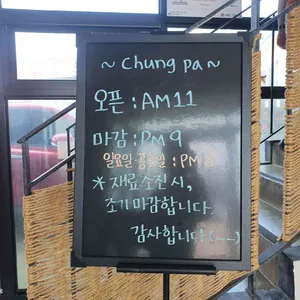 ~ Chung pa ~
오픈 : AM 11
마감 : PM 9
일요일·공휴일 : PM 8
* 재료소진 시,
조기마감합니다
감사합니다(__)